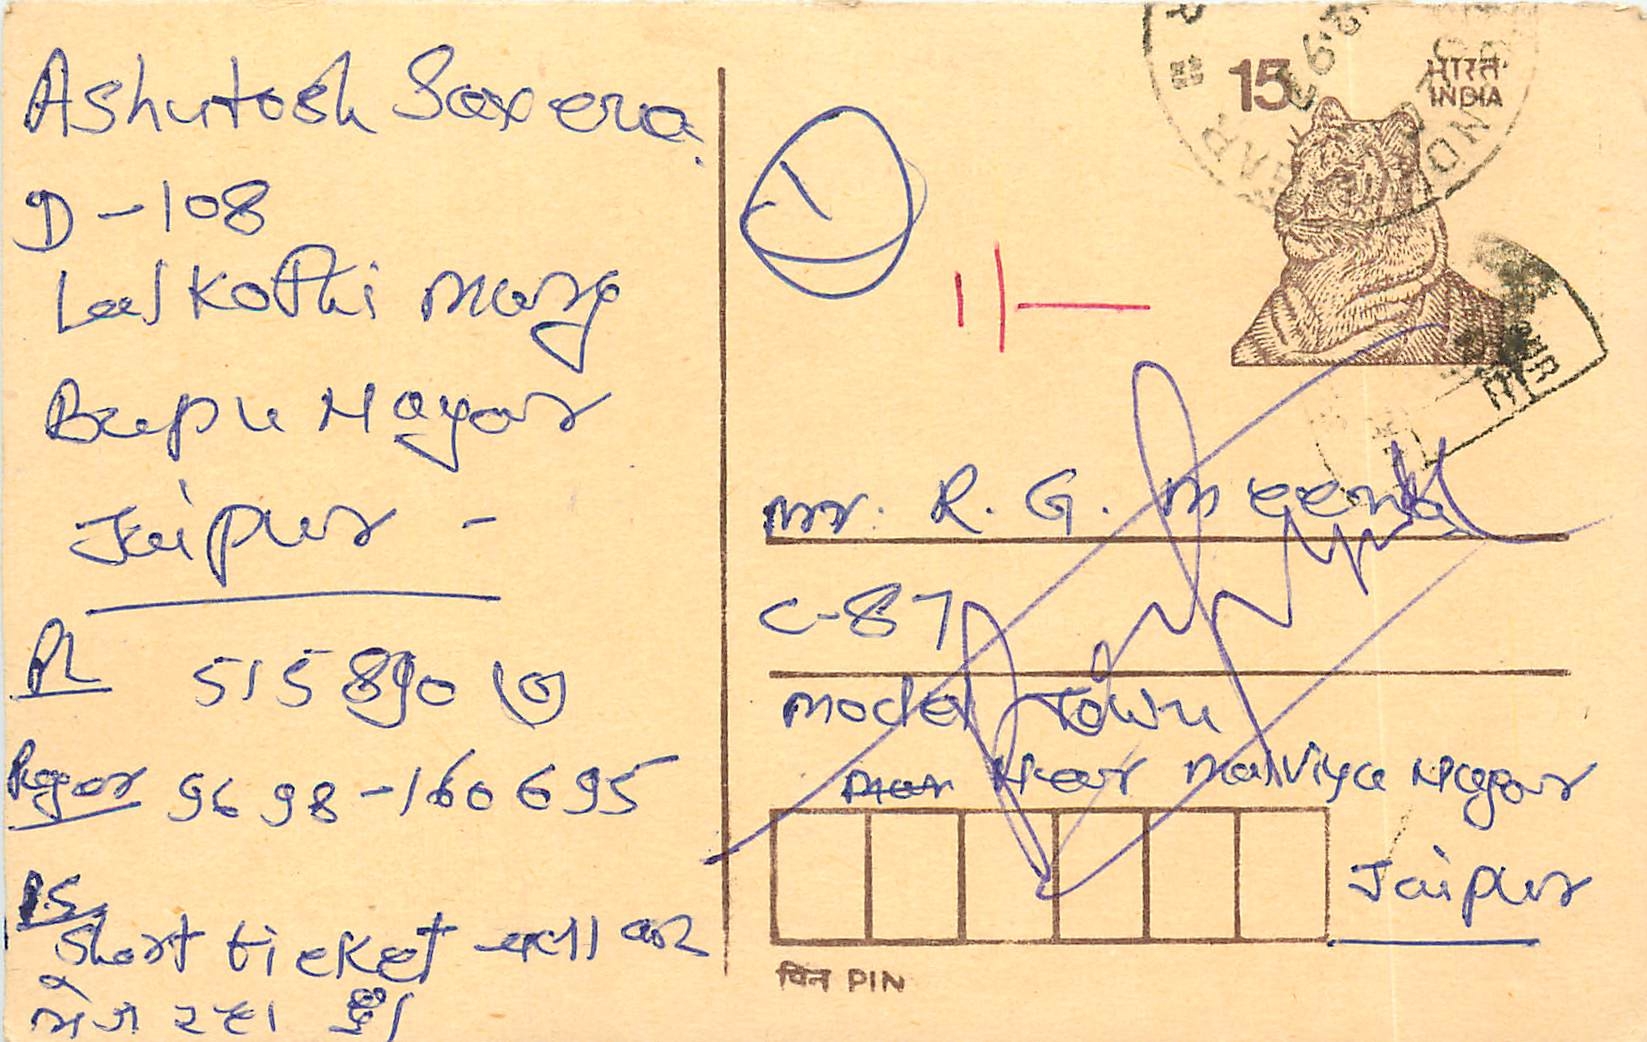 Ashutosh Saxena
D - 108
Lal Kothi marg
Bapu Nagar
Jaipur -
515890
Pager 9698-160695
P.S.
Short ticket लगा कर
भेज रहा हूँ।
15
भारत
INDIA
1/-
mr. R. G. meena
C-87
model Town
Near malviya Nagar
Jaipur
पिन PIN